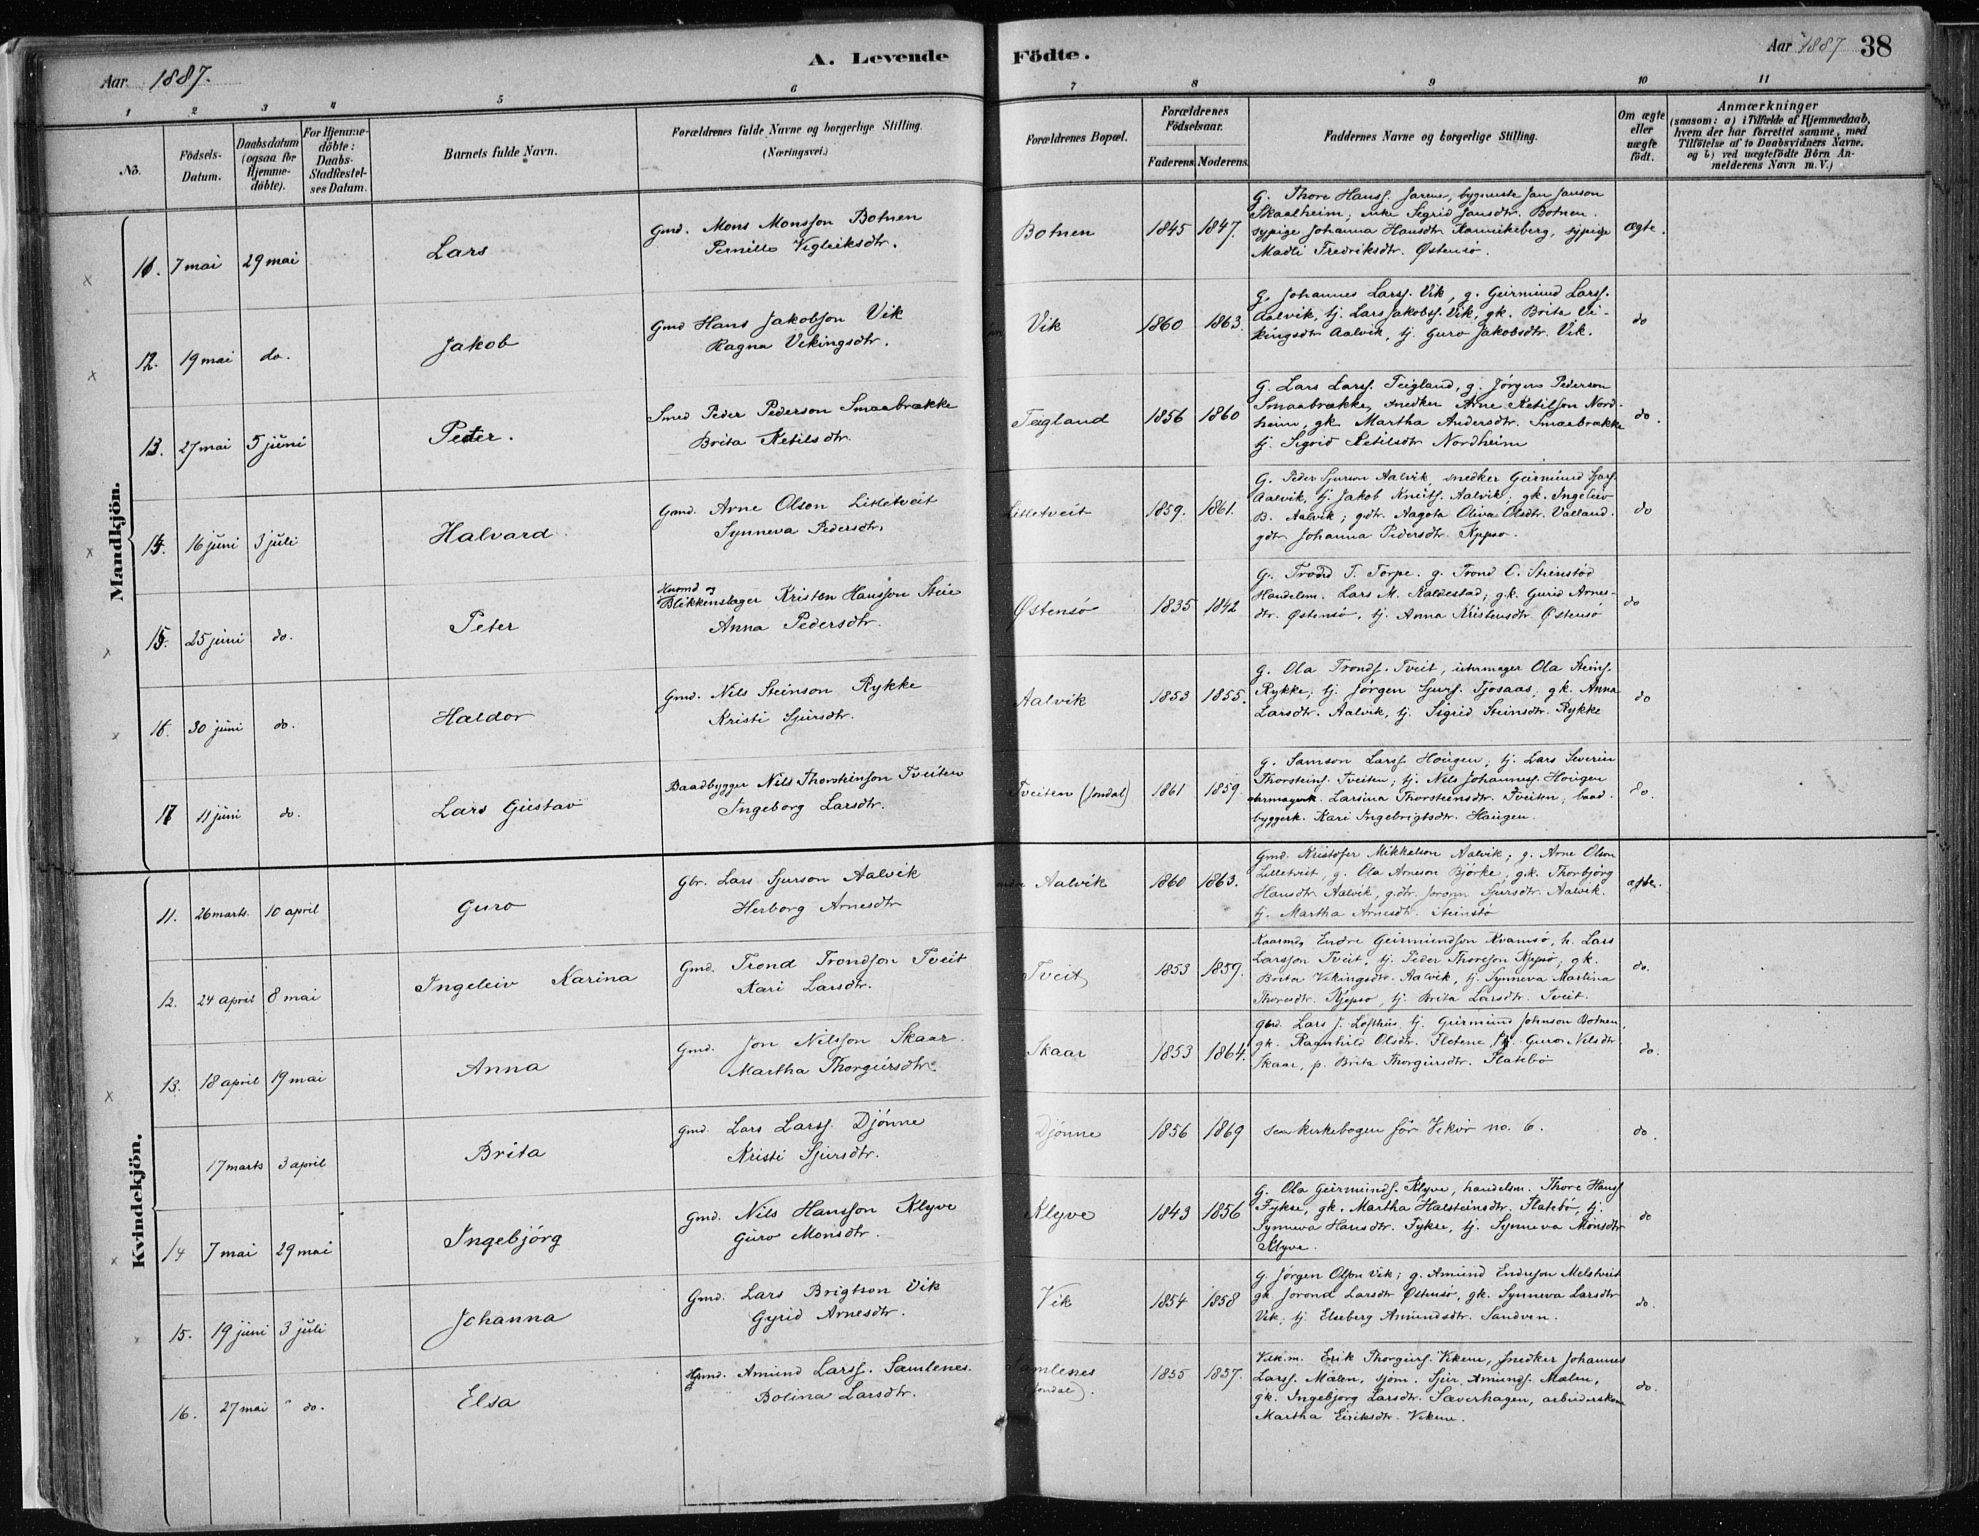 Aar 1887.
A. Levende
Födte.
Aar 1887
38
1 2 3 4 5 6
7 8 9 10 11
No.
Födsels-
Datum.
Daabsdatum
(ogsaa for
Hjemme-
döbte).
For Hjemme-
döbte:
Daabs-
Stadfæstel-
ses Datum.
Barnets fulde Navn.
Forældrenes fulde Navne og borgerlige Stilling.
(Næringsvei.)
Forældrenes Bopæl.
Forældrenes
Födselsaar.
Faderens. Moderens.
Faddernes Navne og borgerlige Stilling.
Om ægte
eller
uægte
födt.
Anmærkninger
(saasom: a) i Tilfælde af Hjemmedaab,
hvem der har forrettet samme, med
Tilföielse af to Daabsvidners Navne.
og b) ved uægtefödte Börn An-
melderens Navn m. V.)
Mandkjön.
11. 7 mai 29 mai
Lars
Gmd. Mons Monsson Botnen
Pernille Vigleiksdtr.
Botnen
1845 1847.
G. Thore Hanss. Jarene, bygmeste Jan Janson
Skaalheim; enke Sigrid Jansdtr. Botnen.
sypige Johanna Hansdtr Kannikeberg, sypige
Madli Fredriksdtr. Østensö.
ægte.
12. 19 mai do.
Jakob
Gmd Hans Jakobson Vik
Ragna Vikingsdtr.
Vik
1860 1863.
G. Johannes Larss. Vik, g. Geirmund Larss.
Aalvik, tj. Lars Jakobss. Vik, gk. Brita Vi-
kingsdtr Aalvik, tj. Guro Jakobsdtr. Vik.
do
13. 27 mai 5 juni
Peter.
Smed Peder Pederson Smaabrække
Brita Ketilsdtr.
Teigland
1856 1860
G. Lars Larss. Teigland, g. Jörgen Pederson
Smaabrække, snedker Arne Ketilson Nord-
heim, gk. Martha Andersdtr. Smaabrække
tj. Sigrid Ketilsdtr Nordheim
do.
14. 16 juni 3 juli
Halvard
Gmd. Arne Olson Litletveit
Synneva Pedersdtr.
Litletveit
1859. 1861.
G. Peder Sjurson Aalvik, snedker Geirmund Larss.
Aalvik, tj. Jakob Aalvik; gk. Ingeleiv
B. Aalvik; gdtr. Aagota Oliva Olsdtr. Valland.
gdtr Johanna Pedersdtr.
do
15. 25 juni do.
Peter
Husmd og
Blikkenslager Kristen Hansson Steie
Anna Pedersdtr.
Østensö
1835 1842
G. Trond T. Torpe. g. Trond C. Steinstöd
Handelsm. Lars M. Kaldestad; gk. Gurid Arnes-
dtr. Østensö, tj. Anna Kristensdtr. Østensö
do
16. 30 juni do.
Haldor
Gmd. Nils Steinson Rykke
Kristi Sjursdtr.
Aalvik
1853 1855.
G. Ola Tronds. Tveit, uhrmager Ola Steins.
Rykke; tj. Jörgen Sjurs. Tjosaas; gk. Anna
Larsdtr. Aalvik, tj. Sigrid Steinsdtr. Rykke
do
17 11 juni do.
Lars Gustav
Baadbygger Nils Thorsteinson Tveiten
Ingeborg Larsdtr.
Tveiten (Jondal)
1861 1859.
g. Samson Larss. Hougen; tj. Lars Severin
Thorsteins. Tveiten; tj. Nils Johanness. Hougen
Larsina Thorsteinsdtr. Tveiten; baad-
byggerk. Kari Ingebrigtsdtr. Haugen.
do.
Kvindekjön.
11. 26 marts. 10 april
Guro
Gbr. Lars Sjurson Aalvik
Herborg Arnesdtr
Aalvik
1860 1863.
Gmd. Kristofer Mikkelson Aalvik; g. Arne Olson
Lilletveit, g. Ola Arneson Björke; gk. Thorbjörg
Hansdtr Aalvik, gdtr. Joronn Sjursdtr. Aalvik.
tj. Martha Arnesdtr. Steinstö
ægte.
12. 24 april 8 mai
Ingeleiv Karina
Gmd. Trond Trondson Tveit
Kari Larsdtr.
Tveit
1853 1859.
Kaarmd. Endre Geirmundson Kvamsö, h. Lars
Larsson Tveit, tj. Peder Thoreson; gk.
Brita Vikingsdtr. Aalvik, tj. Synneva Martina
Thoresdtr., tj. Brita Larsdtr. Tveit.
do.
13. 18 april 19 mai
Anna
Gmd. Jon Nilsson Skaar.
Martha Thorgiersdtr.
Skaar
1853 1864.
Gbrd. Lars J. Lofthus, tj. Geirmund Johnson Botnen,
gk. Ragnhild Olsdtr. Flotene, Guro Nilsdtr
Skaar, p. Brita Thorgiersdtr. Flatebö
do.
17 marts 3 april
Brita
Gmd. Lars Larss. Djönne
Kristi Sjursdtr.
Djönne
1856 1869
se kirkebogen for Vikör no. 6.
do.
14 7 mai 29 mai
Ingebjörg
Gmd. Nils Hansson Klyve
Guro Monsdtr.
Klyve
1843 1856
G. Ola Geirmunds. Klyve, handelsm. Thore Hanss
Fykse, gk. Martha Halsteinsdtr. Flatebö, tj.
Synneva Hansdtr. Fykse, tj. Synneva Monsdtr
Klyve.
do
15. 19 juni 3 juli
Johanna
Gmd. Lars Brigtson Vik
Gyrid Arnesdtr.
Vik
1854 1858
G. Jörgen Olson Vik; g. Amund Endreson Melstveit
gk Jorond Larsdtr Østensö, gk. Synneva Larsdtr
Vik, tj. Elseberg Amundsdtr. Sandven.
do.
16. 27 mai " do.
Elsa
Amund Larss. Samlenes.
Bolina Larsdtr.
Samlenes
(Jondal).
1855 1857.
Erik Thorgiers. Vikene, snedker Johannes
Larss. Mælen, sjöm. Sjur Amunds. Mælen,
gk. Ingebjorg Larsdtr. Sæverhagen, arbeiderskone
Martha Eiriksdtr. Vikene.
do.